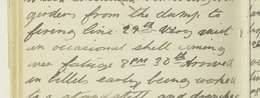 girders from the dump to
firing line 29th Very quiet
an occasional shell coming
over fatigue 8 PM 30th Arrived
in billet early being worked
to a stand still and